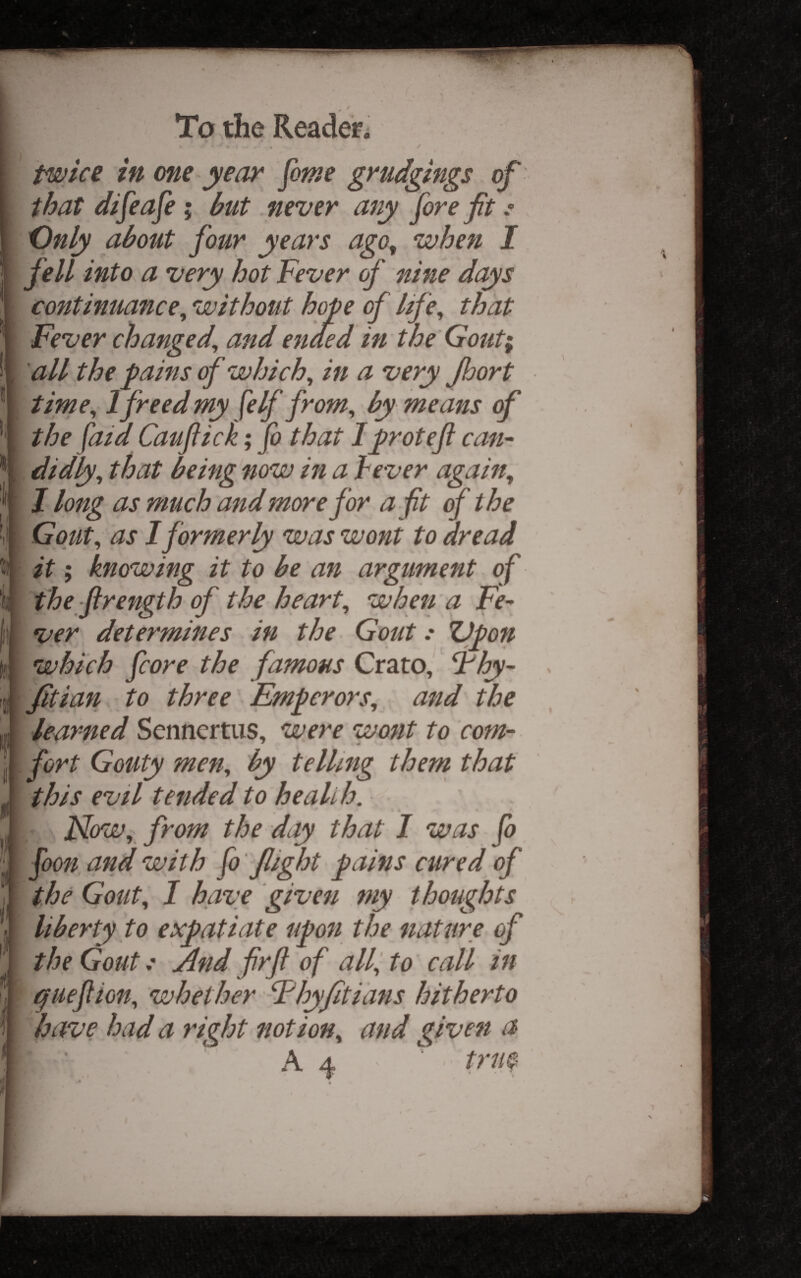 To the Reader.
twice in one year ſome grudgings of
that diſeaſe ; but never any ſore fit :
Only about four years ago, when I
fell into a very hot Fever of nine days
continuance, without hope of life, that
Fever changed, and ended in the Gout;
all the pains of which, in a very ſhort
time, I freed my ſelf from, by means of
the ſaid Cauſtick ; ſo that I proteſt can-
didly, that being now in a Fever again,
I long as much and more for a fit of the
Gout, as I formerly was wont to dread
it ; knowing it to be an argument of
the ſtrength of the heart, when a Fe-
ver determines in the Gout : Upon
which ſcore the famous Crato, Phy-
ſitian to three Emperors, and the
learned Sennertus, were wont to com-
fort Gouty men, by telling them that
this evil tended to health.
Now, from the day that I was ſo
ſoon and with ſo ſlight pains cured of
the Gout, I have given my thoughts
liberty to expatiate upon the nature of
the Gout : And firſt of all, to call in
queſtion, whether Phyſitians hitherto
have had a right notion, and given a
A 4 true